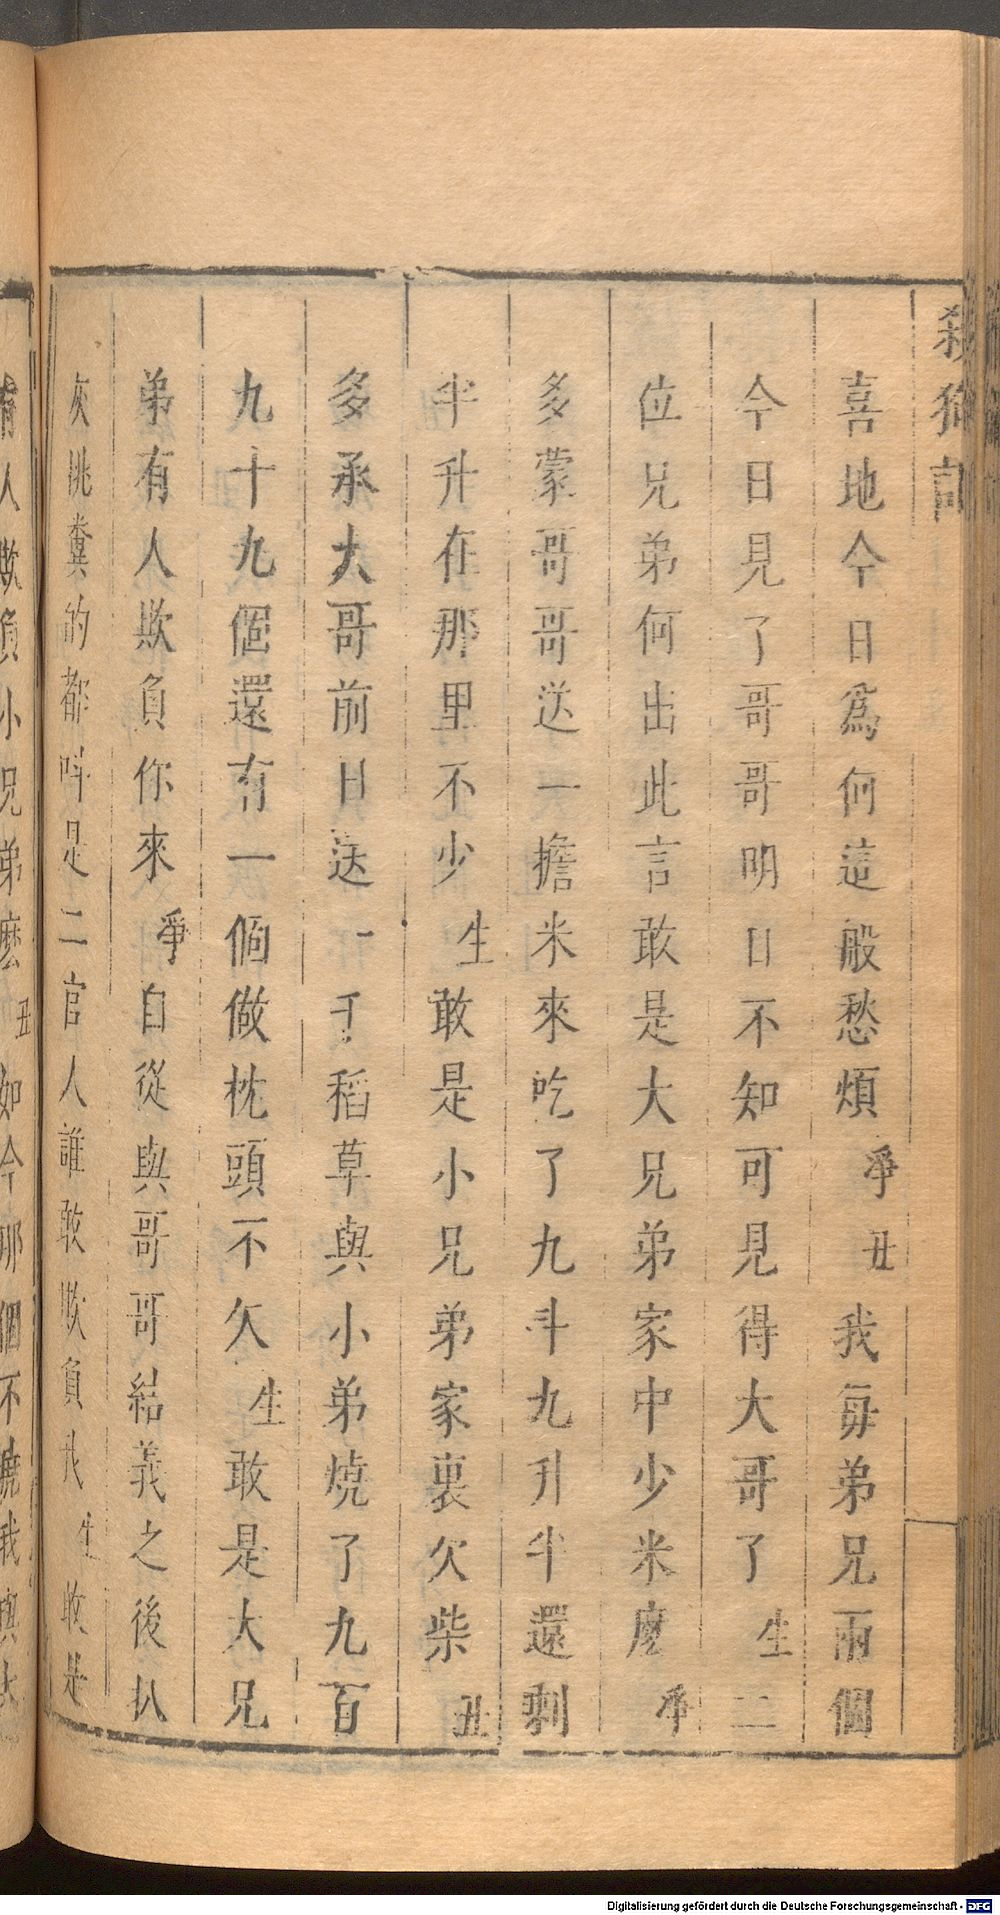 殺狗記
喜地今日爲何這般愁煩淨丑我每弟兄兩個
今日見了哥哥明日不知可見得大哥了生二
位兄弟何出此言敢是大兄弟家中少米麽淨
多蒙哥哥送一擔米來吃了九斗九升半還剩
半升在那里不少生敢是小兄弟家裏欠柴丑
多承大哥前日送一千稻草與小弟燒了九百
九十九個還有一個做枕頭不欠生敢是大兄
弟有人欺負你來淨自從與哥哥結義之後扒
灰挑糞的都呌是二官人誰敢欺負我生敢是
有人欺負小兄弟麽丑如今那個不曉我與大
Digitalisierung gefördert durch die Deutsche Forschungsgemeinschaft - DFG